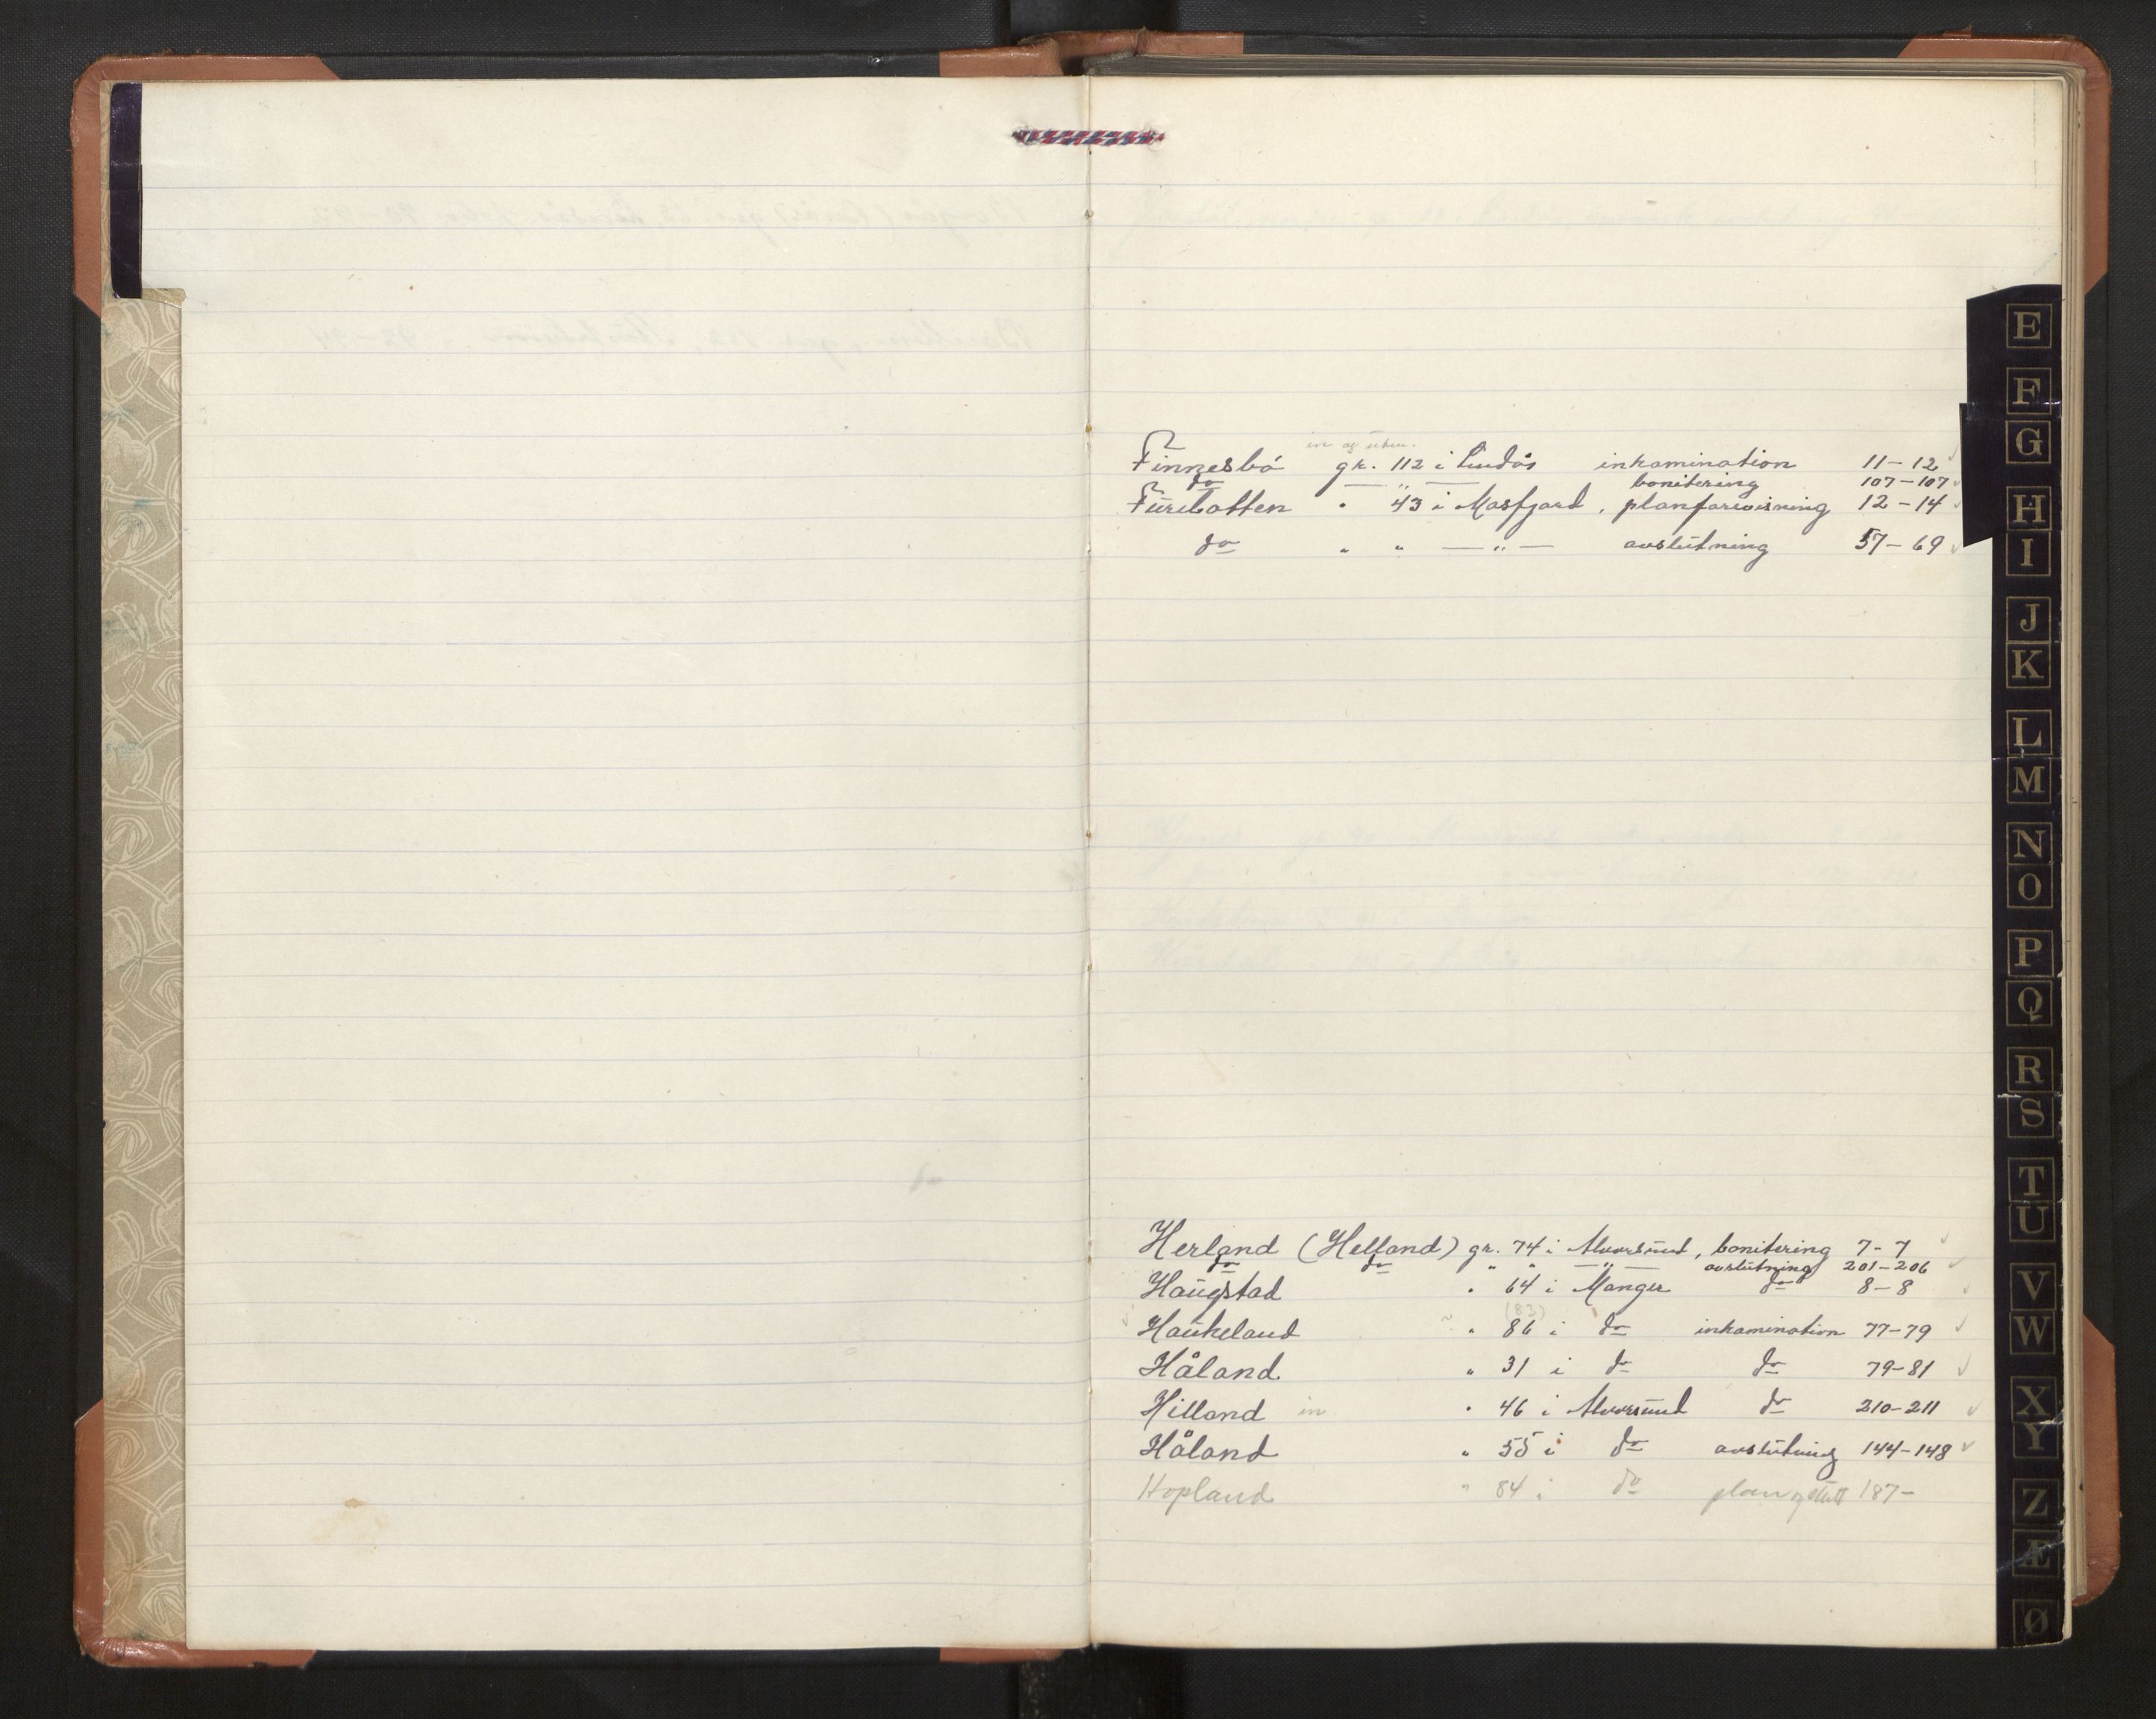 in og uten.
Finnesbö gr. 112 i Lindås inkamination 11-12
do — " — bonitering 107-107
Furebotten " 43 i Masfjord, planforevisning 12-14
do " " — " — avslutning 57-69
Herland (Helland) gr. 74 i Alversund, bonitering 7-7
do do " " — " — avslutning 201-206
Haugstad " 64 i Manger do 8-8
(83)
Haukeland " 86 i do inkamination 77-79
Håland " 31 i do do 79-81
Hilland in " 46 i Alversund do 210-211
Håland " 55 i do avslutning 144-148
Hopland " 84 i do plan og slutt 187-
E
F
G
H
I
J
K
L
M
N
O
P
Q
R
S
T
U
V
W
X
Y
Z
Æ
Ø